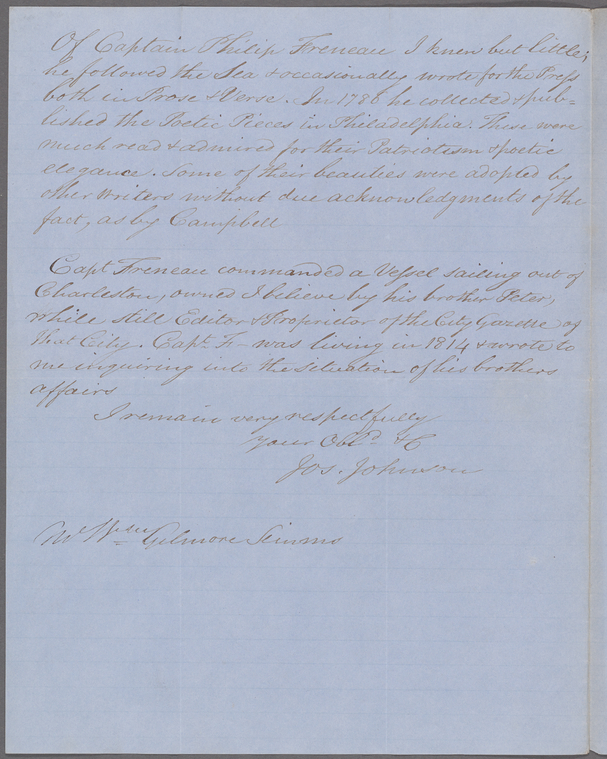 Of Captain Philip Freneau I knew but little;
he followed the Sea & occasionally wrote for the Press
both in Prose & Verse. In 1786 he collected & pub=
lished the Poetic Pieces in Philadelphia. These were
much read & admired for their Patriotism & poetic
elegance. Some of their beauties were adopted by
other writers without due acknowledgments of the
fact, as by Campbell
Capt Freneau commanded a Vessel sailing out of
Charleston, owned I believe by his brother Peter,
while still Editor & Proprietor of the City Gazette of
that City. Capt. Fr— was living in 1814 & wrote to
me inquiring into the situation of his brothers
affairs
I remain very respectfully
Your Obd &C
Jos. Johnson
Wm Gilmore Simms